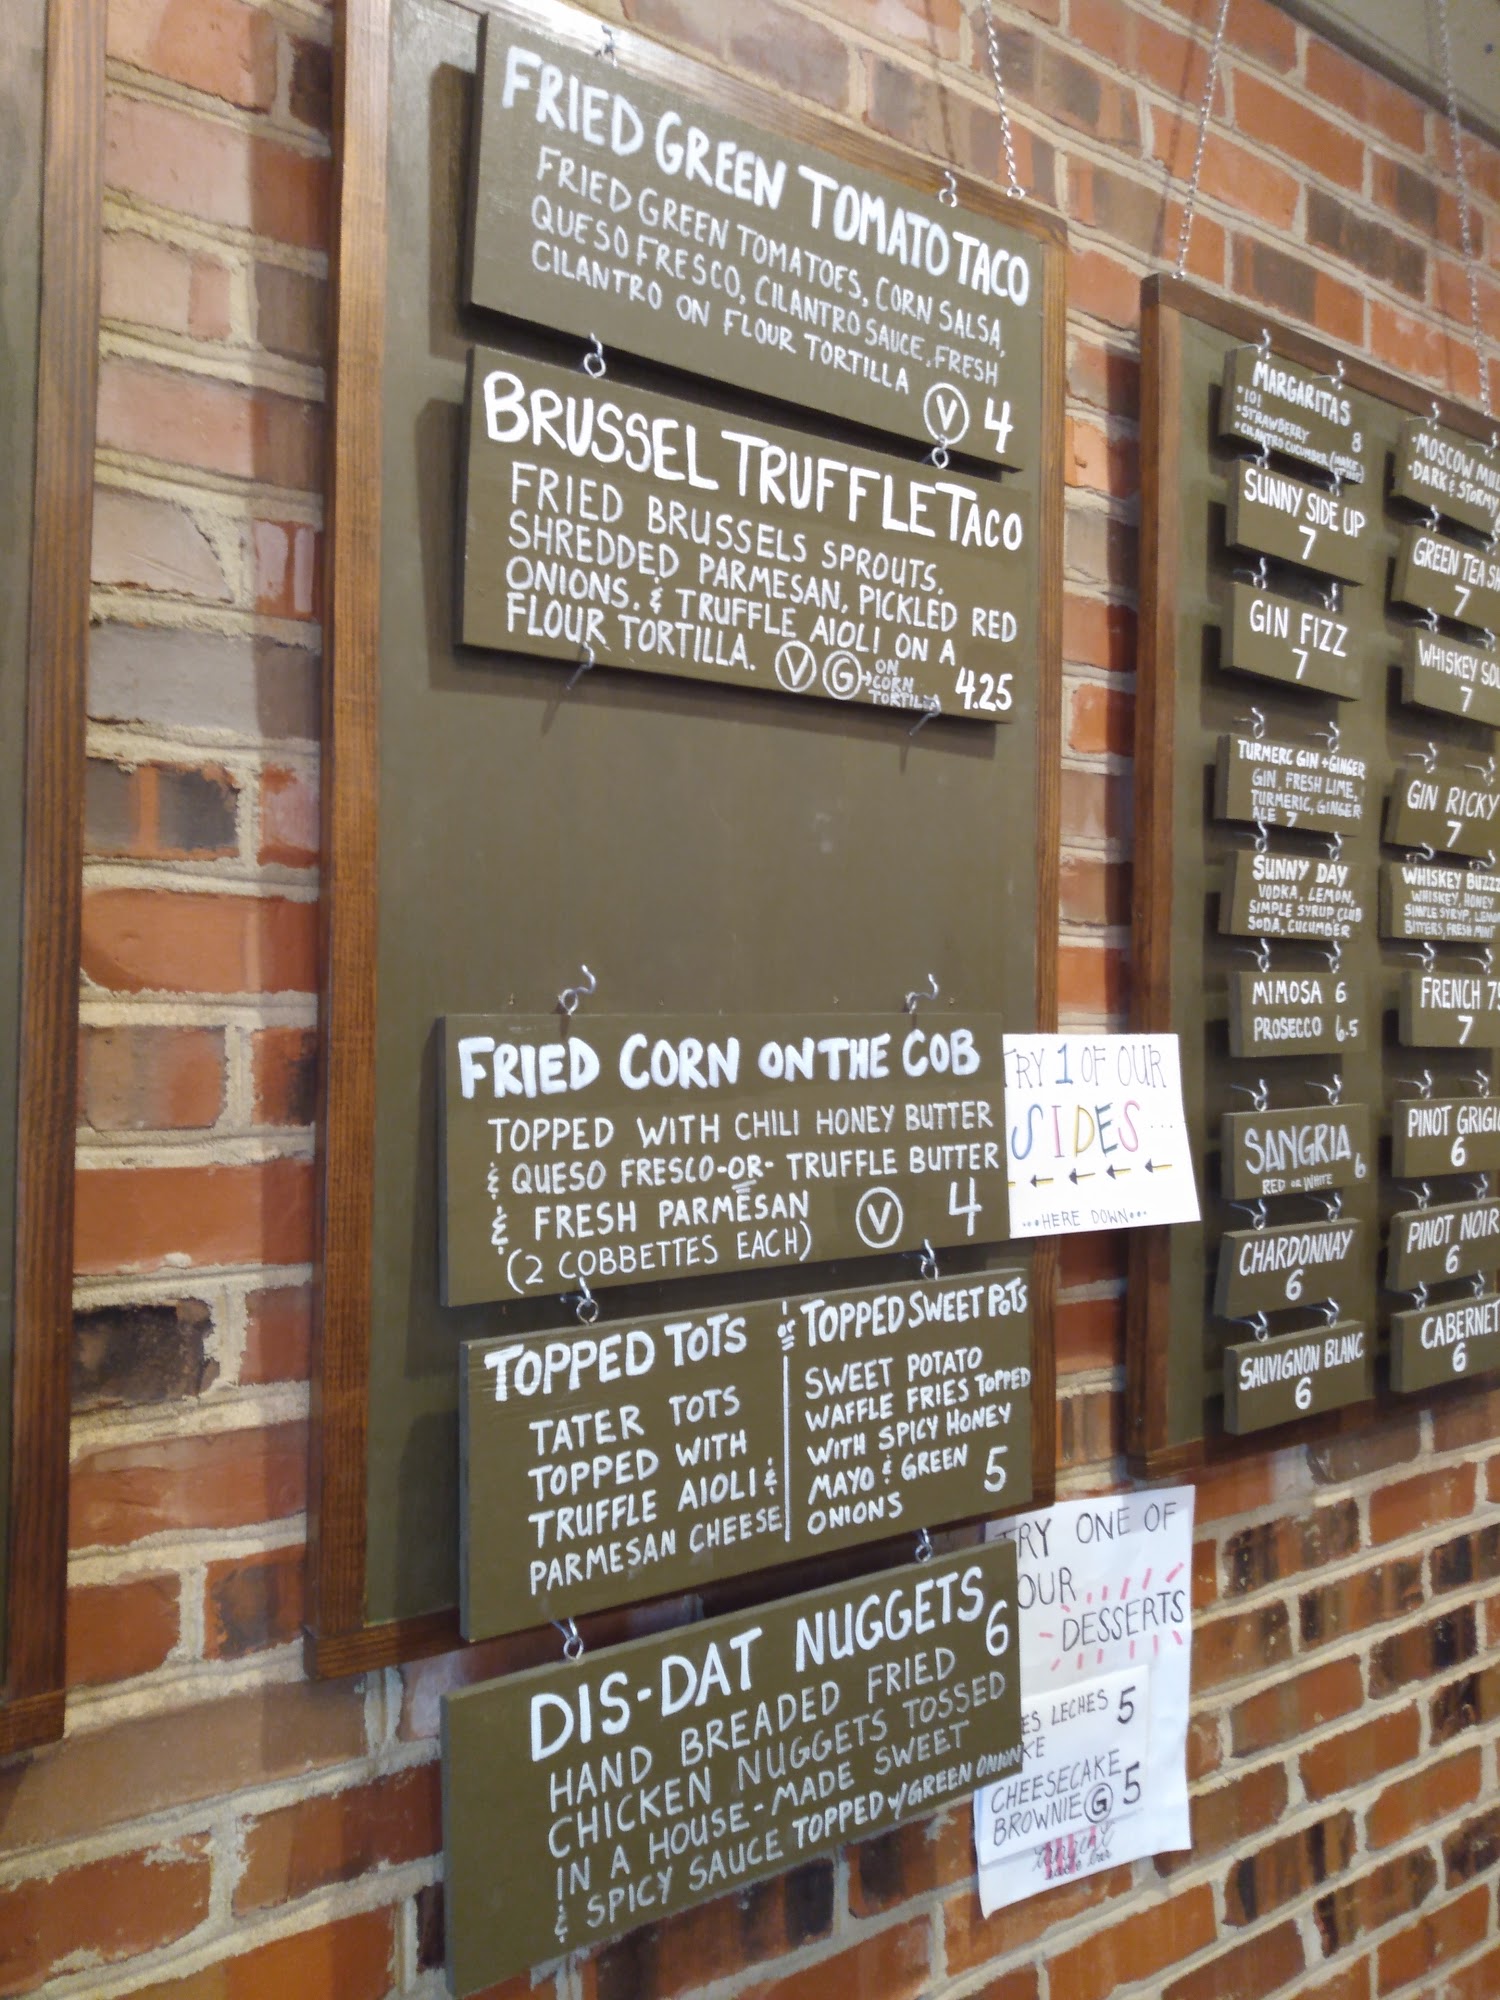 FRIED GREEN TOMATO TACO
FRIED GREEN TOMATOES, CORN SALSA,
QUESO FRESCO, CILANTRO SAUCE, FRESH
CILANTRO ON FLOUR TORTILLA
V 4
BRUSSEL TRUFFLE TACO
FRIED BRUSSELS SPROUTS,
SHREDDED PARMESAN, PICKLED RED
ONIONS, & TRUFFLE AIOLI ON A
FLOUR TORTILLA. V G→ ON
CORN
TORTILLA
4.25
FRIED CORN ON THE COB
TOPPED WITH CHILI HONEY BUTTER
& QUESO FRESCO -OR- TRUFFLE BUTTER
& FRESH PARMESAN
(2 COBBETTES EACH) V 4
TOPPED TOTS
TATER TOTS
TOPPED WITH
TRUFFLE AIOLI &
PARMESAN CHEESE
or
TOPPED SWEET POTS
SWEET POTATO
WAFFLE FRIES TOPPED
WITH SPICY HONEY
MAYO & GREEN
ONIONS
5
DIS-DAT NUGGETS 6
HAND BREADED FRIED
CHICKEN NUGGETS TOSSED
IN A HOUSE-MADE SWEET
& SPICY SAUCE TOPPED w/ GREEN ONION
TRY 1 OF OUR
SIDES...
...HERE DOWN...
TRY ONE OF
OUR
DESSERTS
ES LECHES 5
KE
CHEESECAKE
BROWNIE G 5
MARGARITAS
•101
•STRAWBERRY 8
•CILANTRO CUCUMBER
SUNNY SIDE UP
7
GIN FIZZ
7
TURMERC GIN + GINGER
GIN, FRESH LIME,
TURMERIC, GINGER
ALE 7
SUNNY DAY
VODKA, LEMON,
SIMPLE SYRUP, CLUB
SODA, CUCUMBER
MIMOSA 6
PROSECCO 6.5
SANGRIA 6
RED OR WHITE
CHARDONNAY
6
SAUVIGNON BLANC
6
•MOSCOW MUL
•DARK & STORMY
GREEN TEA S
7
WHISKEY SO
7
GIN RICKY
7
WHISKEY BUZZZ
WHISKEY, HONEY
SIMPLE SYRYP, LEMO
BITTERS, FRESH MINT
FRENCH 75
7
PINOT GRIGIO
6
PINOT NOIR
6
CABERNET
6